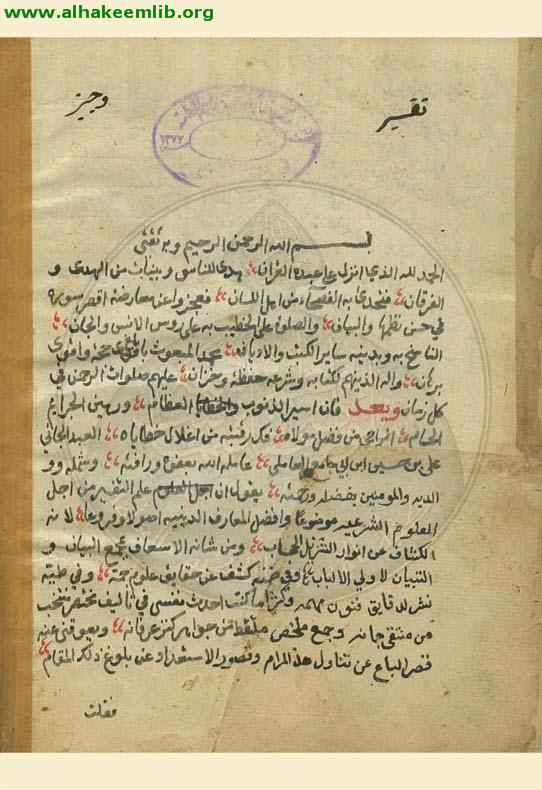 www.alhakeemlib.org
تفسير وجيز
١٣٧٧
بسم الله الرحمن الرحيم وبه ثقتي
الحمد لله الذي انزل على عبده القران هدى للناس وبينات من الهدى و
الفرقان فتحدى به الفصحاء من اهل اللسان فعجزوا عن معارضة اقصر سورة
في حسن نظمها والبيان والصلوة على الخطيب به على روس الانس والجان
الناسخ به وبدينه ساير الكتب والاديان محمد المبعوث حجة واقوى
برهان واله الذينهم لكتابه وشرعه حفظة وخزان عليهم صلوات الرحمن في
كل زمان وبعد فان اسير الذنوب والخطايا العظام ورهين الجرايم
الراجي من فضل مولاه فك رقبته من اغلال خطاياه العبد الجاني
علي بن حسين ابن ابي جامع العاملي عامله الله بعفوه ورافته وشمله وو
الديه والمومنين بفضله ورحمته يقول ان اجل العلوم علم التفسير من اجل
العلوم الشرعيه موضوعا وافضل المعارف الدينيه اصولا وفروعا لانه
الكشاف عن انوار التنزيل الحجاب ومن شانه الاسعاف بمجمع البيان و
التبيان لاولي الالباب وفي ضمنه كشف عن حقايق علوم جمة وفي طيه
نشر لدقايق فنون مهمه وكثيرا ما كنت احدث نفسي في تاليف مختصر منتخب
من منتقى جمانه وجمع ملخص ملتقط من جواهر كنز عرفانه ويعوقني عنه
قصر الباع عن تناول هذا المرام وقصور الاستعداد عن بلوغ ذلك المقام
فقلت